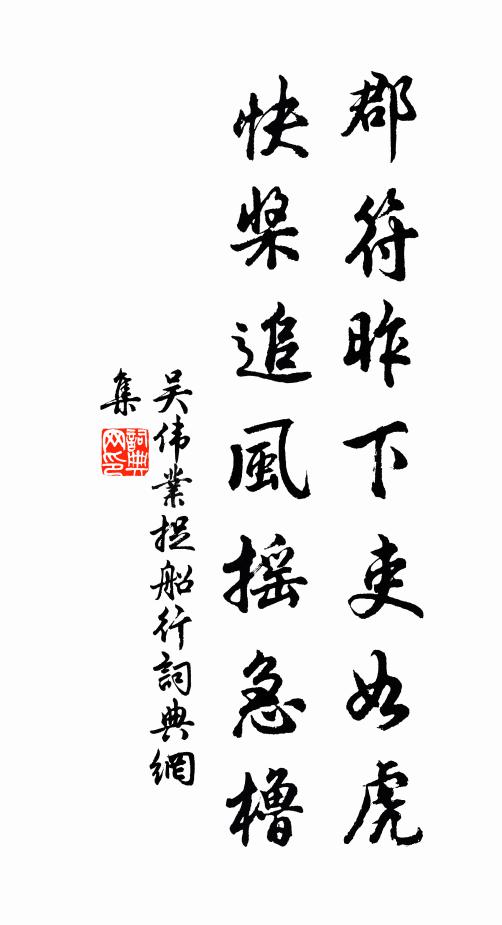 郡符昨下吏如虎
快槳追風搖急櫓
吴伟業捉船行詞典網
集
詞典
网印